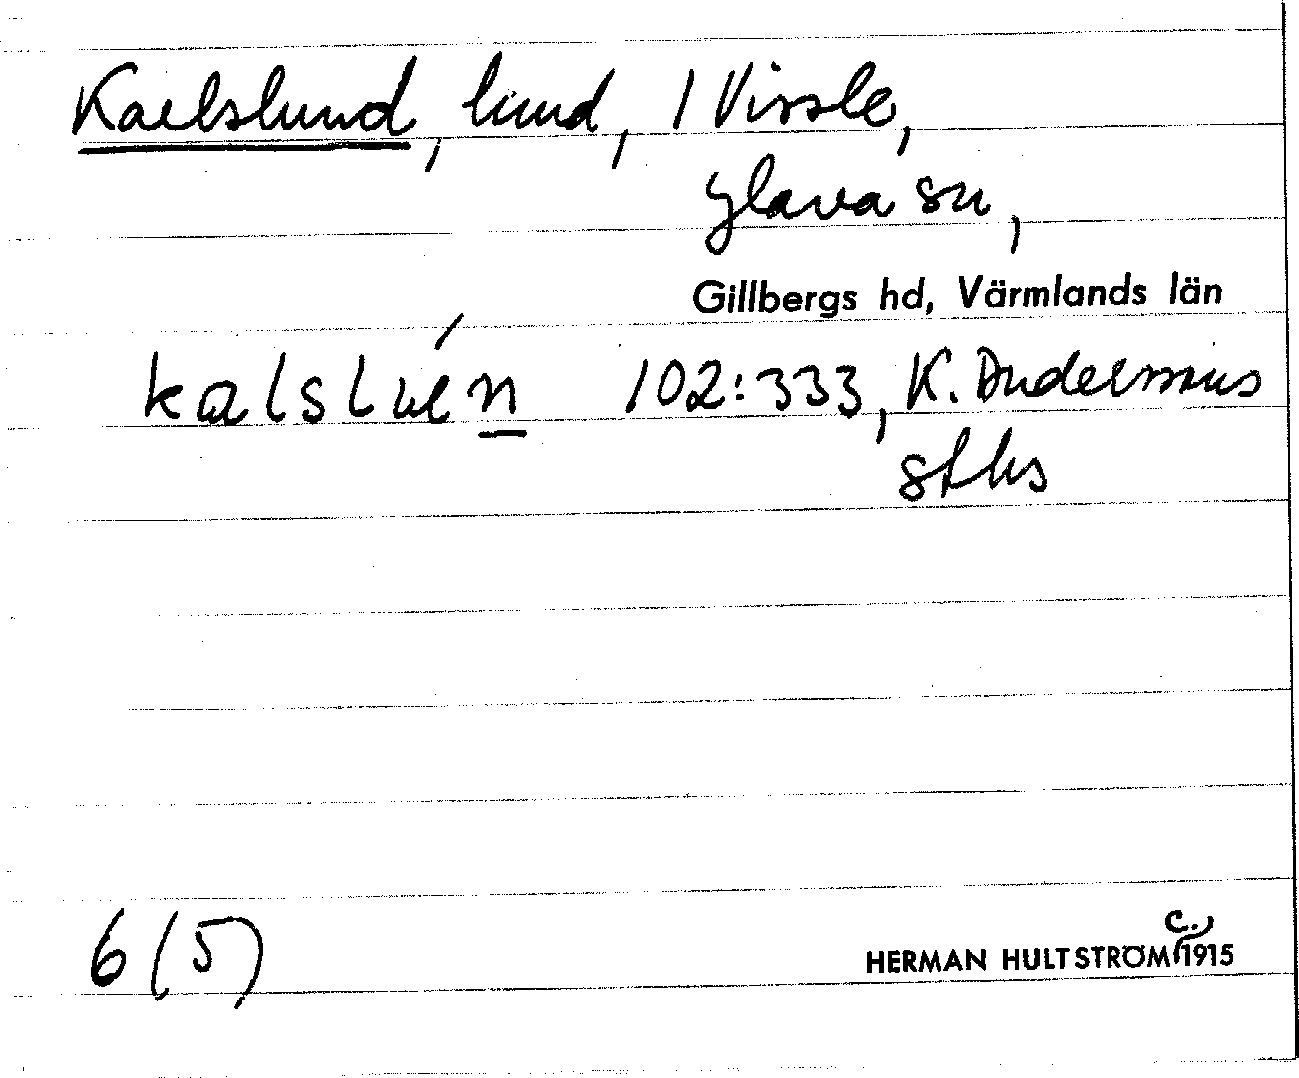 Karlslund, lund, 1 Vissle,
Glava sn,
Gillbergs hd, Värmlands län
kalsluén 102:333, K. Andersson
sths
6 (5)
HERMAN HULTSTRÖM c. 1915